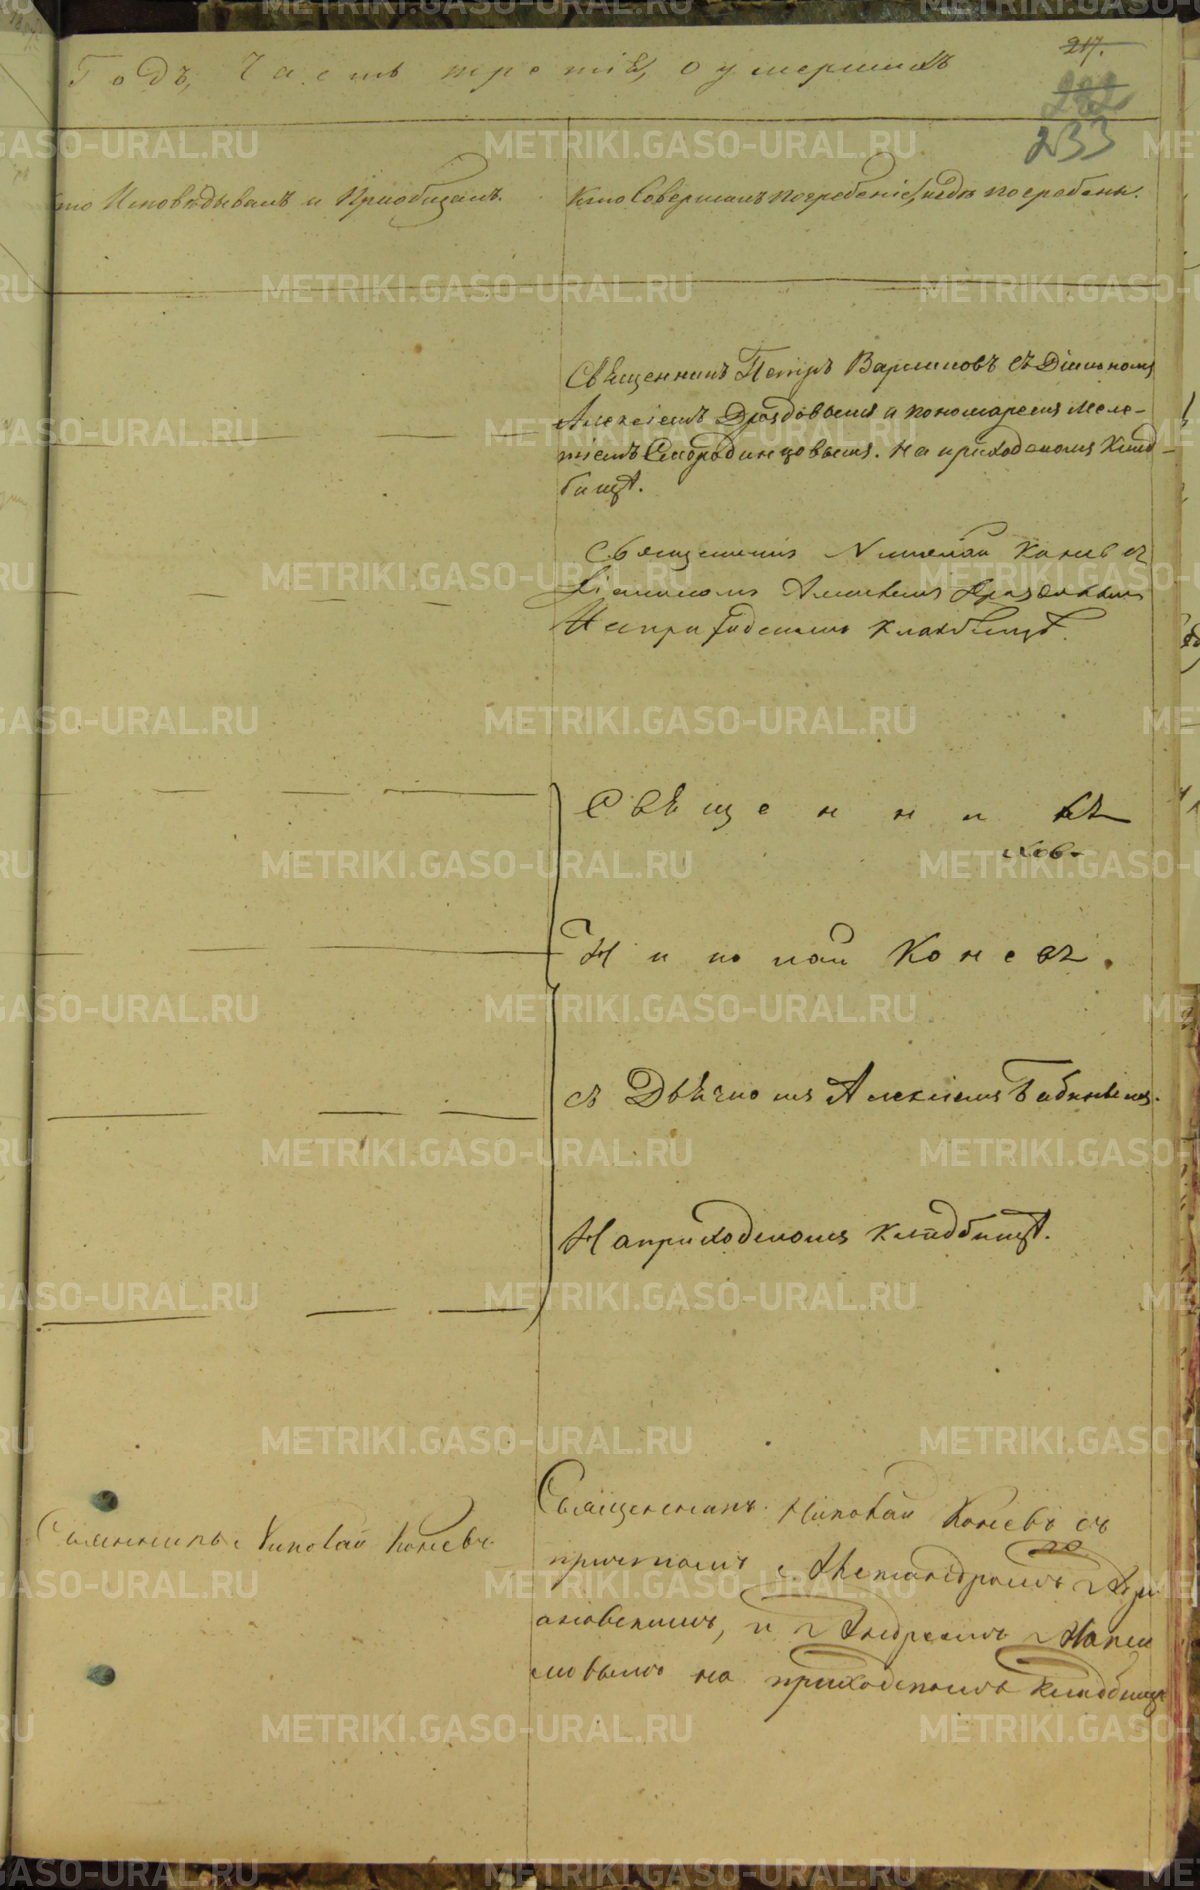 Годъ, Часть третія, о умершихъ
217.
232
233
кто Исповѣдывалъ и Пріобщалъ.
Кто Совершалъ погребеніе, и гдѣ погребены.
Священникъ Петръ Варлаковъ съ Діакономъ
Алексіемъ Дроздовымъ и пономаремъ Меле-
тіемъ Смородинцовымъ. На приходскомъ клад-
бищѣ.
Священникъ Николай Коневъ съ
Діакономъ Алексѣемъ Дроздовымъ
На приходскомъ кладбищѣ.
Священникъ
Николай Коневъ.
съ Дьячкомъ Алексіемъ Бабинымъ.
На приходскомъ кладбищѣ.
Священникъ Николай Коневъ
Священникъ Николай Коневъ съ
причтомъ Александромъ
и Андреемъ
на приходскомъ кладбищѣ
METRIKI.GASO-URAL.RU